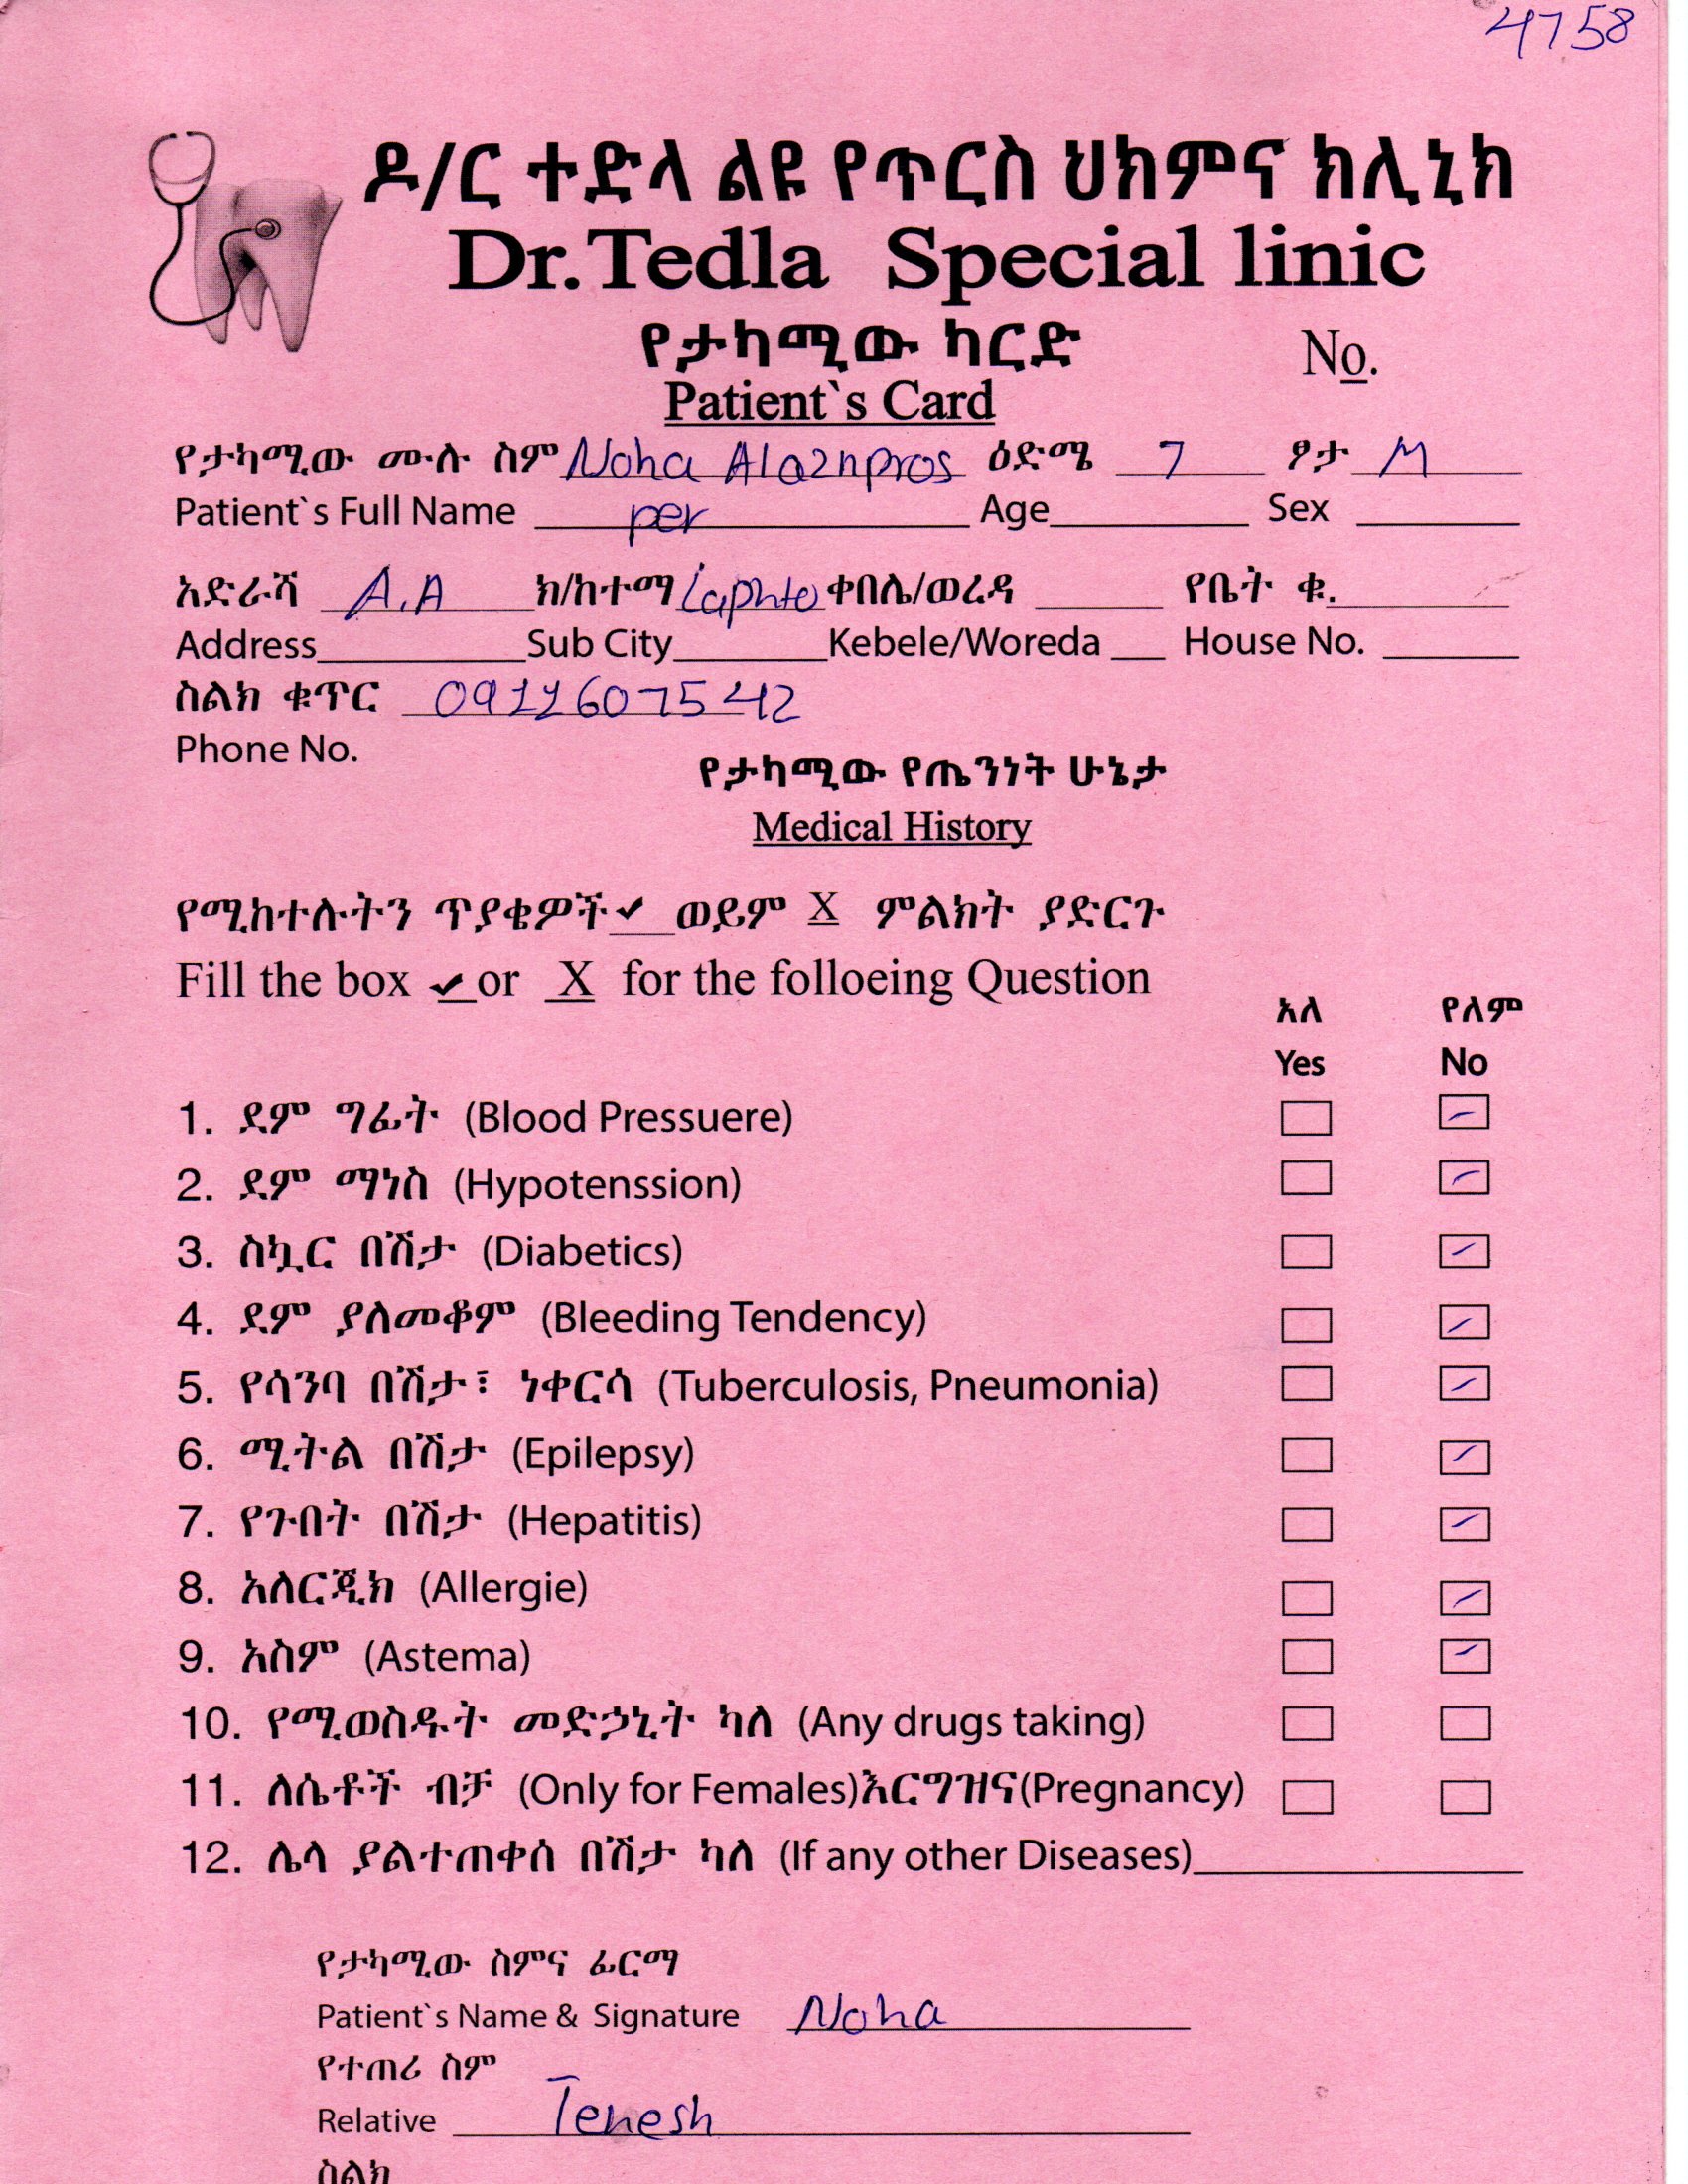 4758
ዶ/ር ተድላ ልዩ የጥርስ ህክምና ክሊኒክ
Dr. Tedla Special linic
የታካሚው ካርድ No.
Patient`s Card
የታካሚው ሙሉ ስም Noha Alaznpros ዕድሜ 7 ፆታ M
Patient`s Full Name per Age Sex
አድራሻ A.A ክ/ከተማ Laphto ቀበሌ/ወረዳ የቤት ቁ.
Address Sub City Kebele/Woreda House No.
ስልክ ቁጥር 0911607542
Phone No.
የታካሚው የጤንነት ሁኔታ
Medical History
የሚከተሉትን ጥያቄዎች ✓ ወይም X ምልክት ያድርጉ
Fill the box ✓ or X for the folloeing Question
አለ የለም
Yes No
1. ደም ግፊት (Blood Pressuere)
2. ደም ማነስ (Hypotenssion)
3. ስኳር በሽታ (Diabetics)
4. ደም ያለመቆም (Bleeding Tendency)
5. የሳንባ በሽታ፣ ነቀርሳ (Tuberculosis, Pneumonia)
6. ሚትል በሽታ (Epilepsy)
7. የጉበት በሽታ (Hepatitis)
8. አለርጂክ (Allergie)
9. አስም (Astema)
10. የሚወስዱት መድኃኒት ካለ (Any drugs taking)
11. ለሴቶች ብቻ (Only for Females)እርግዝና(Pregnancy)
12. ሌላ ያልተጠቀሰ በሽታ ካለ (If any other Diseases)
የታካሚው ስምና ፊርማ
Patient`s Name & Signature Noha
የተጠሪ ስም
Relative Tenesh
ስልክ